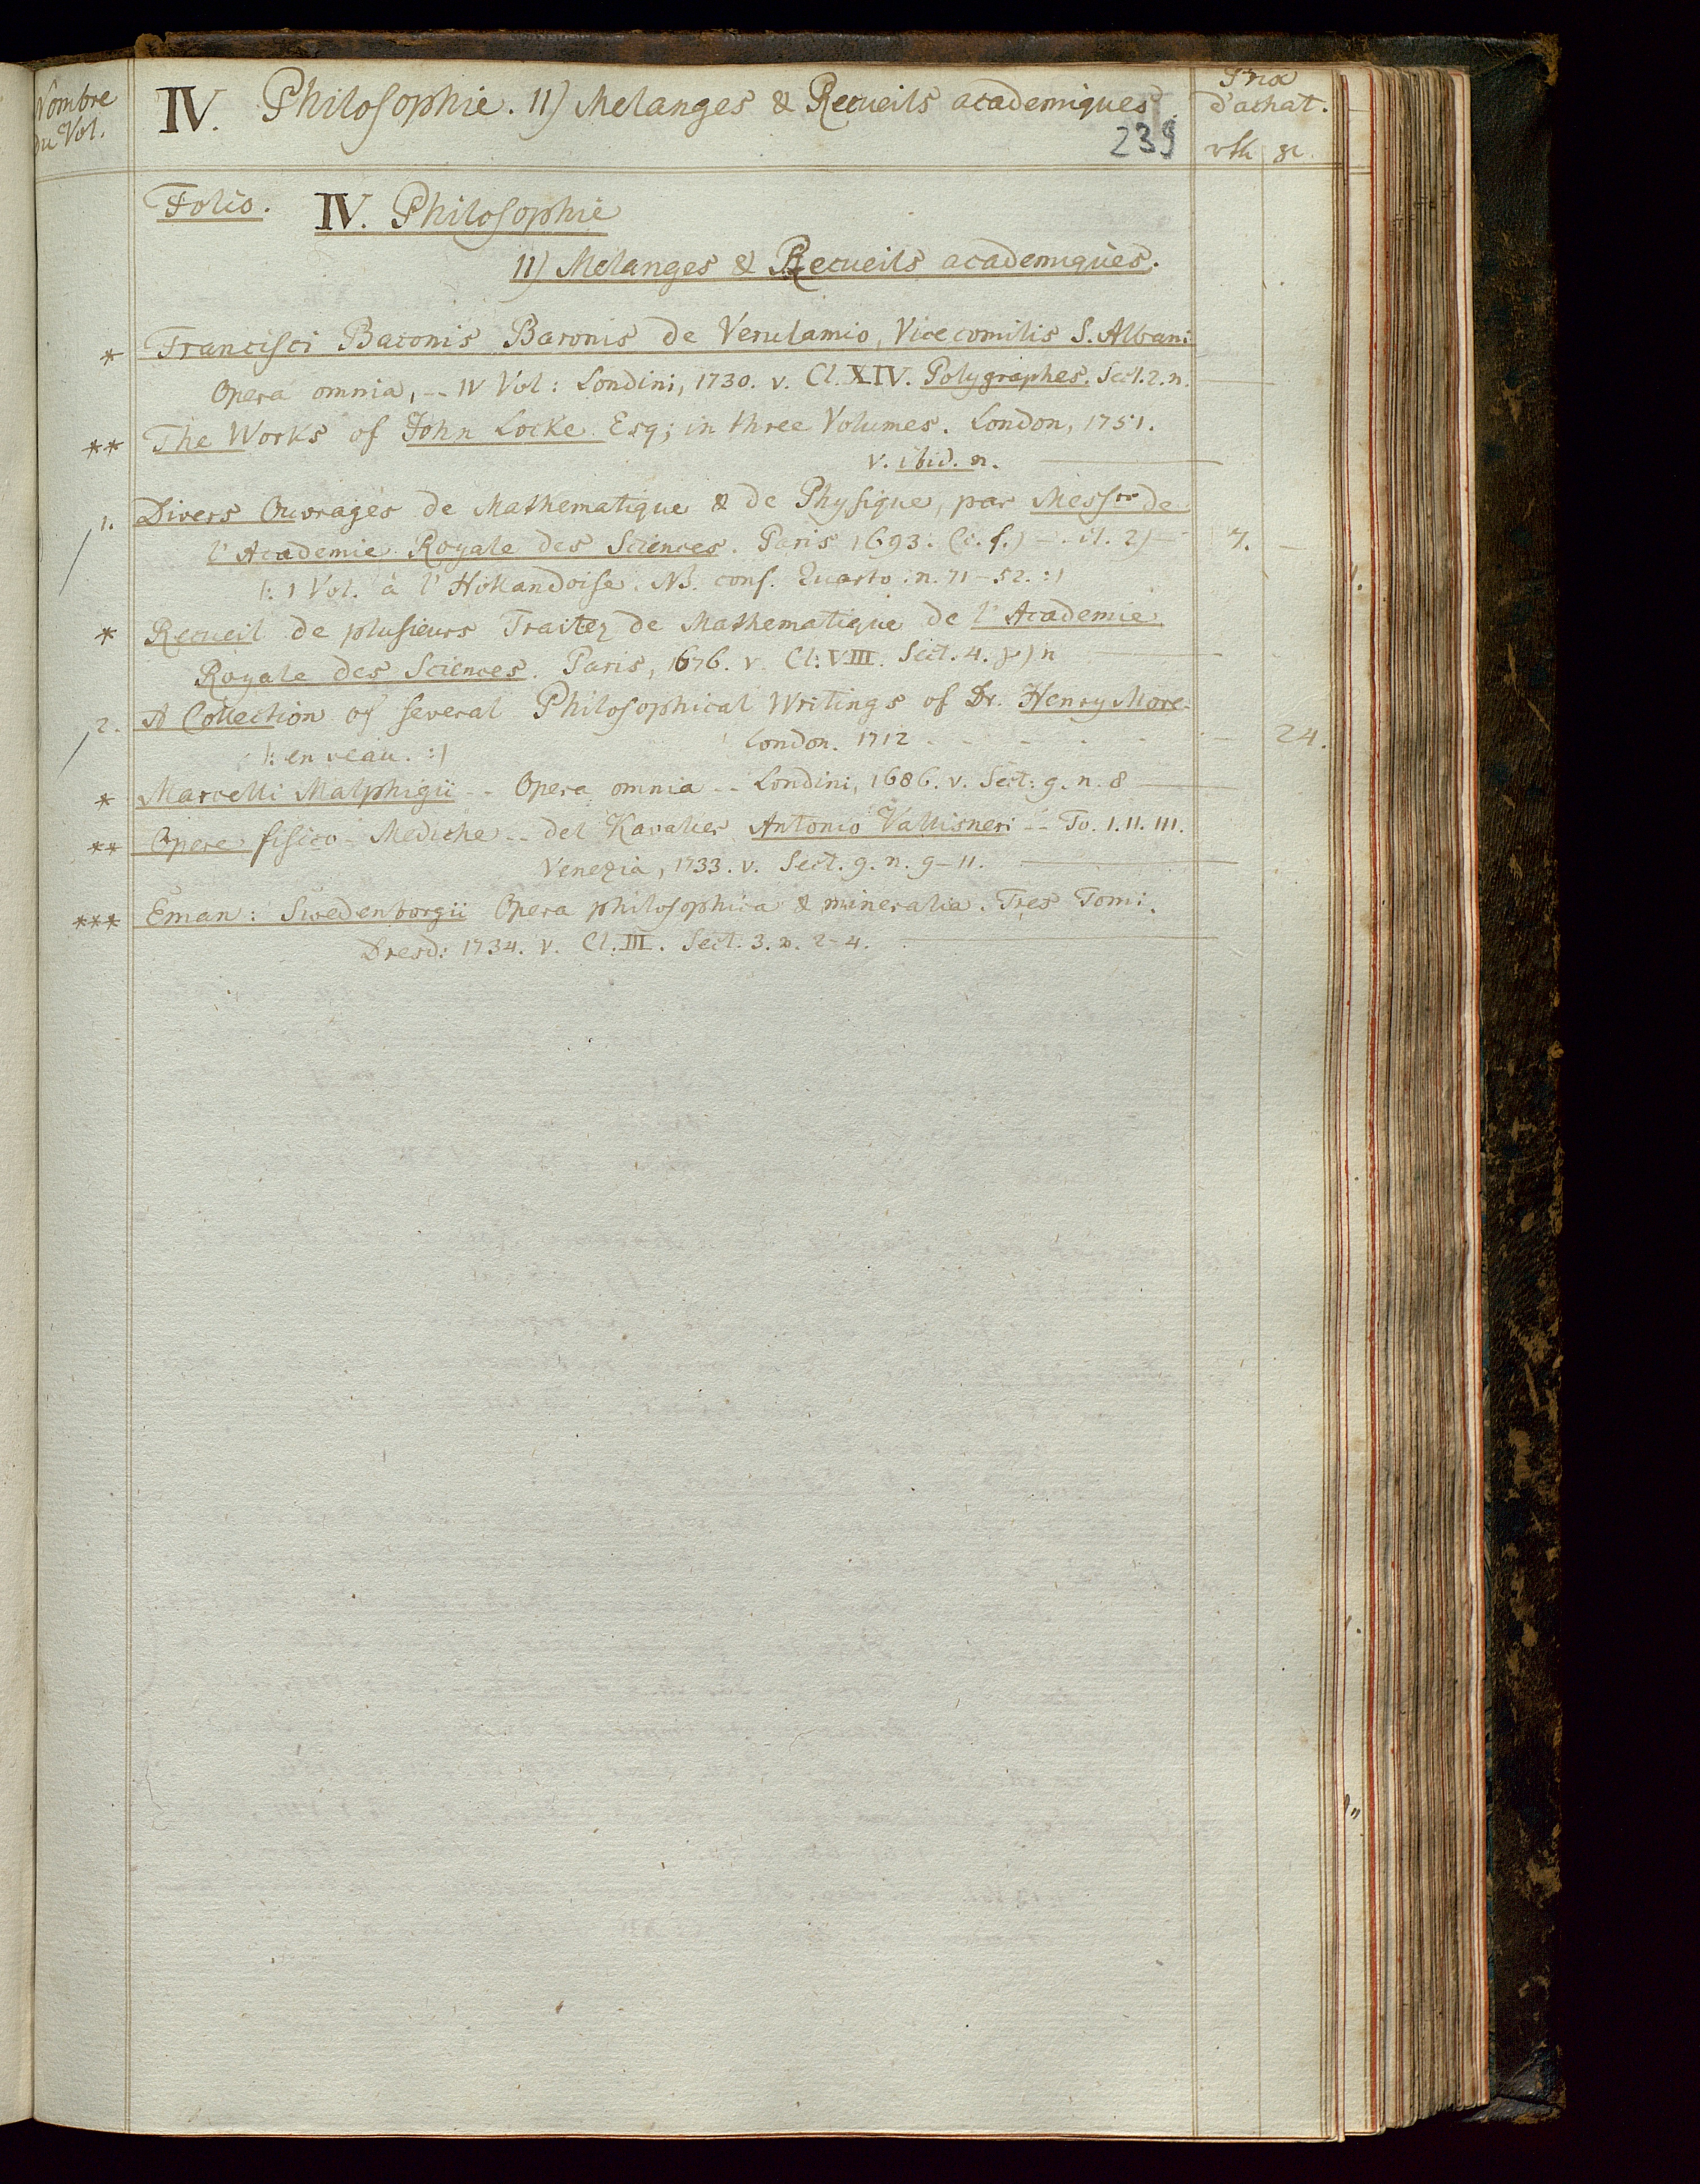 Nombre
du Vol.
IV. Philosophie. 11) Melanges & Recueils academiques.
Prix
d'achat.
239
rth gr.
Folio. IV. Philosophie
11) Melanges & Recueils academiques.
* Francisci Baconis Baronis de Verulamio, Vice comitis S. Albani
Opera omnia, -- IV Vol: Londini, 1730. v. Cl. XIV. Polygraphes. Sect. 2. n.
** The Works of John Locke Esq; in three Volumes. London, 1751.
v. ibid. n.
1. Divers Ouvrages de Mathematique & de Physique, par Mess.rs de
l'Academie Royale des Sciences. Paris 1693. (c. f.) - 7. -
|: 1 Vol. à l'Hollandoise. NB. conf. Quarto. n. 71-52. :|
* Recueil de plusieurs Traitez de Mathematique de l'Academie
Royale des Sciences. Paris, 1676. v. Cl: VIII. Sect. 4. n
2. A Collection of several Philosophical Writings of Dr. Henry More.
|: en veau. :| London. 1712 - - - - - - 24.
* Marcelli Malphigii -- Opera omnia -- Londini, 1686. v. Sect: 9. n. 8
** Opere fisico-Mediche -- del Kavalier Antonio Vallisneri -- To. I. II. III.
Venezia, 1733. v. Sect. 9. n. 9-11.
*** Eman: Swedenborgii Opera philosophica & mineralia. Tres Tomi.
Dresd: 1734. v. Cl. III. Sect. 3. n. 2-4.